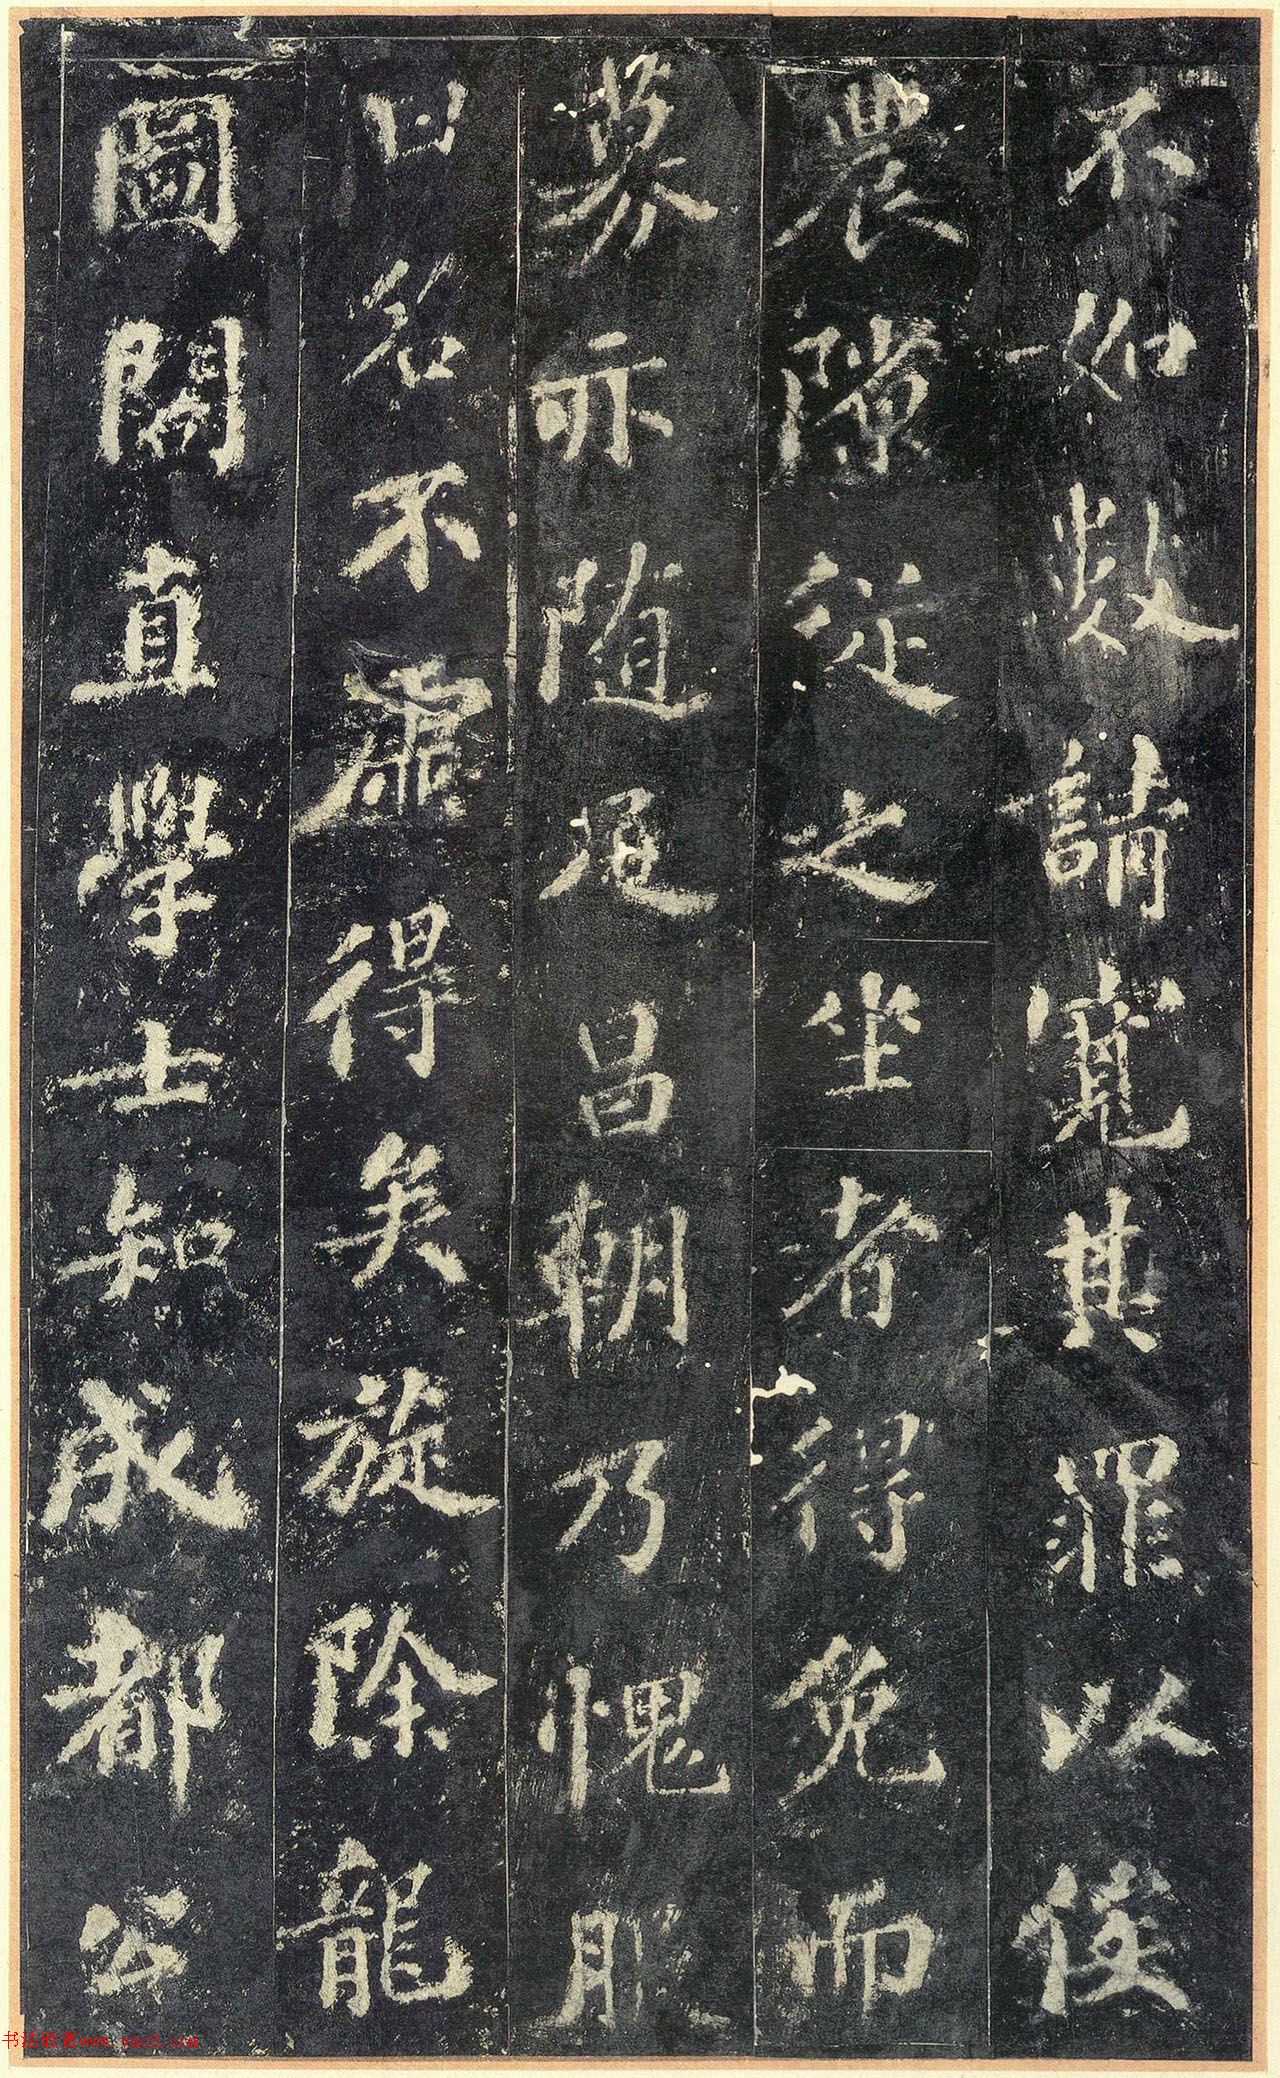 不如數請寬其罪以俟
農隙從之坐者得免而
募亦隨足昌朝乃愧服
曰名不虛得矣旋除龍
圖閣直學士知成都公
书法欣赏www.yac8.com